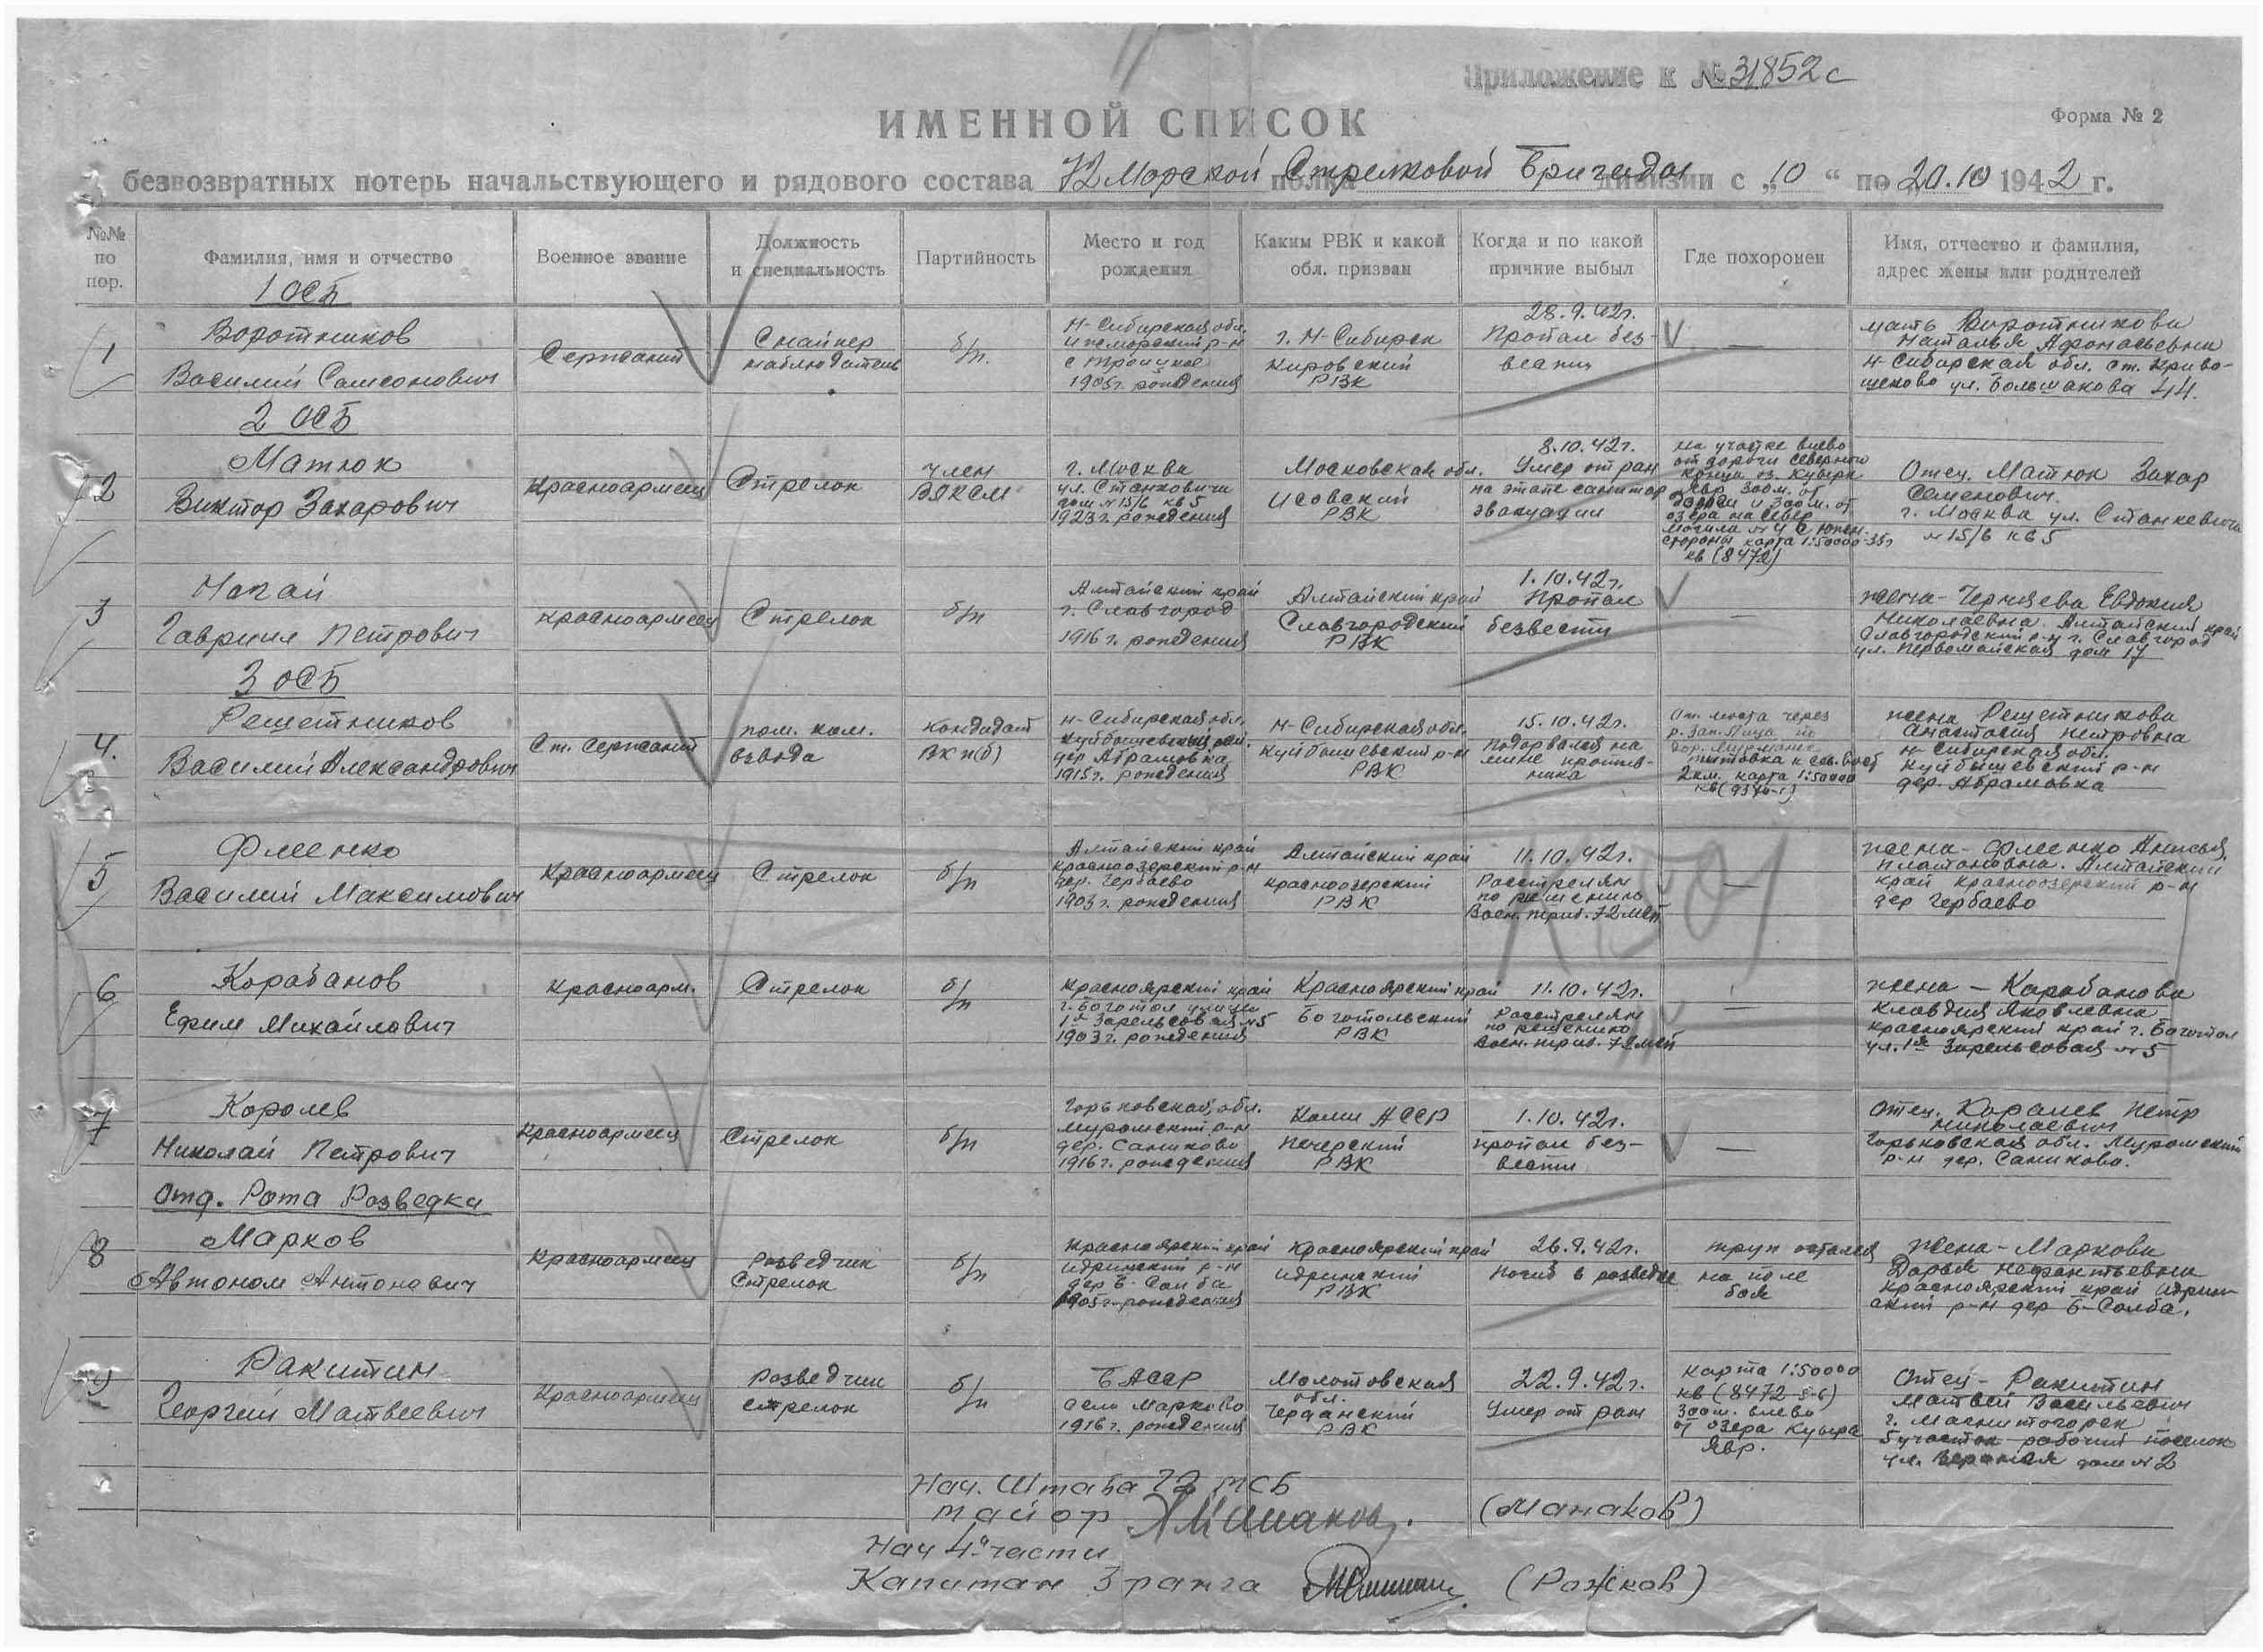 Приложение к № 31852с
ИМЕННОЙ СПИСОК
Форма № 2
безвозвратных потерь начальствующего и рядового состава 72 Морской полка Стрелковой Бригады дивизии с „10 “ по „20.10 1942 г.
№№ по пор.
Фамилия, имя и отчество
Военное звание
Должность и специальность
Партийность
Место и год рождения
Каким РВК и какой обл. призван
Когда и по какой причине выбыл
Где похоронен
Имя, отчество и фамилия, адрес жены или родителей
1 ОСБ
1
Воротников
Василий Самсонович
Сержант
Снайпер
наблюдатель
б/п.
Н-Сибирская обл.
с Троицкое
1905г. рождения
г. Н-Сибирск
Кировский
РВК
28.9.42г.
Пропал без-
вести
—
мать Воротникова
Наталья Афонасьевна
Н-Сибирская обл. ст. Криво-
щеково ул. Большакова 44.
2 ОСБ
2
Матюк
Виктор Захарович
Красноармеец
Стрелок
Член
ВЛКСМ
г. Москва
ул. Станкевича
дом №15/6 кв 5
1923г. рождения
Московская обл.
РВК
8.10.42г.
Умер от ран
на этапе санитар
эвакуации
на участке влево
от дороги северной
конца оз. Куырк
Явр 300м. от
дороги и 300м. от
озера на север
могила №4 с южн.
стороны карта 1:50000-35г
кв (8472)
Отец. Матюк Захар
Семенович.
г. Москва ул. Станкевича
№15/6 кв 5
3
Нагай
Гавриил Петрович
Красноармеец
Стрелок
б/п
Алтайский край
г. Славгород
1916г. рождения
Алтайский край
Славгородский
РВК
1.10.42г.
Пропал
безвести
—
жена- Черняева Евдокия
Николаевна. Алтайский край
Славгородский р-н г. Славгород
ул. Первомайская дом 17
3 ОСБ
4.
Решетников
Василий Александрович
Ст. Сержант
пом. ком.
взвода
кандидат
ВКП(б)
Н-Сибирская обл.
Куйбышевский рай.
дер Абрамовка
1915г. рождения
Н-Сибирская обл.
Куйбышевский р-н
РВК
15.10.42г.
Подорвался на
мине против-
ника
От. моста через
р. Зап-Лица по
дор. Мурманск
титовка к сев. вост
2км. карта 1:50000
жена Решетникова
Анастасия Петровна
Н-Сибирская обл.
Куйбышевский р-н
дер. Абрамовка
5
Флеенко
Василий Максимович
Красноармеец
Стрелок
б/п
Алтайский край
Красноозерский р-н
дер. Гербаево
1903г. рождения
Алтайский край
Красноозерский
РВК
11.10.42г.
Расстрелян
по решению
Воен. триб. 72 МСБ
—
жена- Флеенко Анисья
Платоновна. Алтайский
край Красноозерский р-н
дер Гербаево
6
Карабанов
Ефим Михайлович
Красноарм.
Стрелок
б/п
Красноярский край
г. Боготол улица
1я Зарельсовая №5
1903г. рождения
Красноярский край
Боготольский
РВК
11.10.42г.
Расстрелян
по решению
Воен. триб. 72 МСБ
—
жена - Карабанова
Клавдия Яковлевна
Красноярский край г. Боготол
ул. 1я Зарельсовая №5
7
Королев
Николай Петрович
Красноармеец
Стрелок
б/п
Горьковская обл.
Муромский р-н
дер. Саниково
1916г. рождения
Коми АССР
Печерский
РВК
1.10.42г.
пропал без-
вести
—
отец. Королев Петр
Николаевич
Горьковская обл. Муромский
р-н дер. Саниково.
Отд. Рота Разведки
8
Марков
Автоном Антонович
Красноармеец
Разведчик
Стрелок
б/п
Красноярский край
Идринский р-н
дер Б-Салба
1905г. рождения
Красноярский край
Идринский
РВК
26.9.42г.
Погиб в разведке
труп остался
на поле
боя
жена- Маркова
Дарья
Красноярский край Идрин-
ский р-н дер Б-Салба.
9
Ракитин
Георгий Матвеевич
Красноармеец
Разведчик
стрелок
б/п
БАССР
село Марково
1916г. рождения
Молотовская
обл.
Чердынский
РВК
22.9.42г.
Умер от ран
Карта 1:50000
300м. влево
от озера Куырк
Явр.
Отец- Ракитин
Матвей Васильевич
г. Магнитогорск
5 участок рабочий поселок
дом №2
Нач. Штаба 72 МСБ
майор Манаков. (Манаков)
Нач 4й части
Капитан 3 ранга (Рожков)